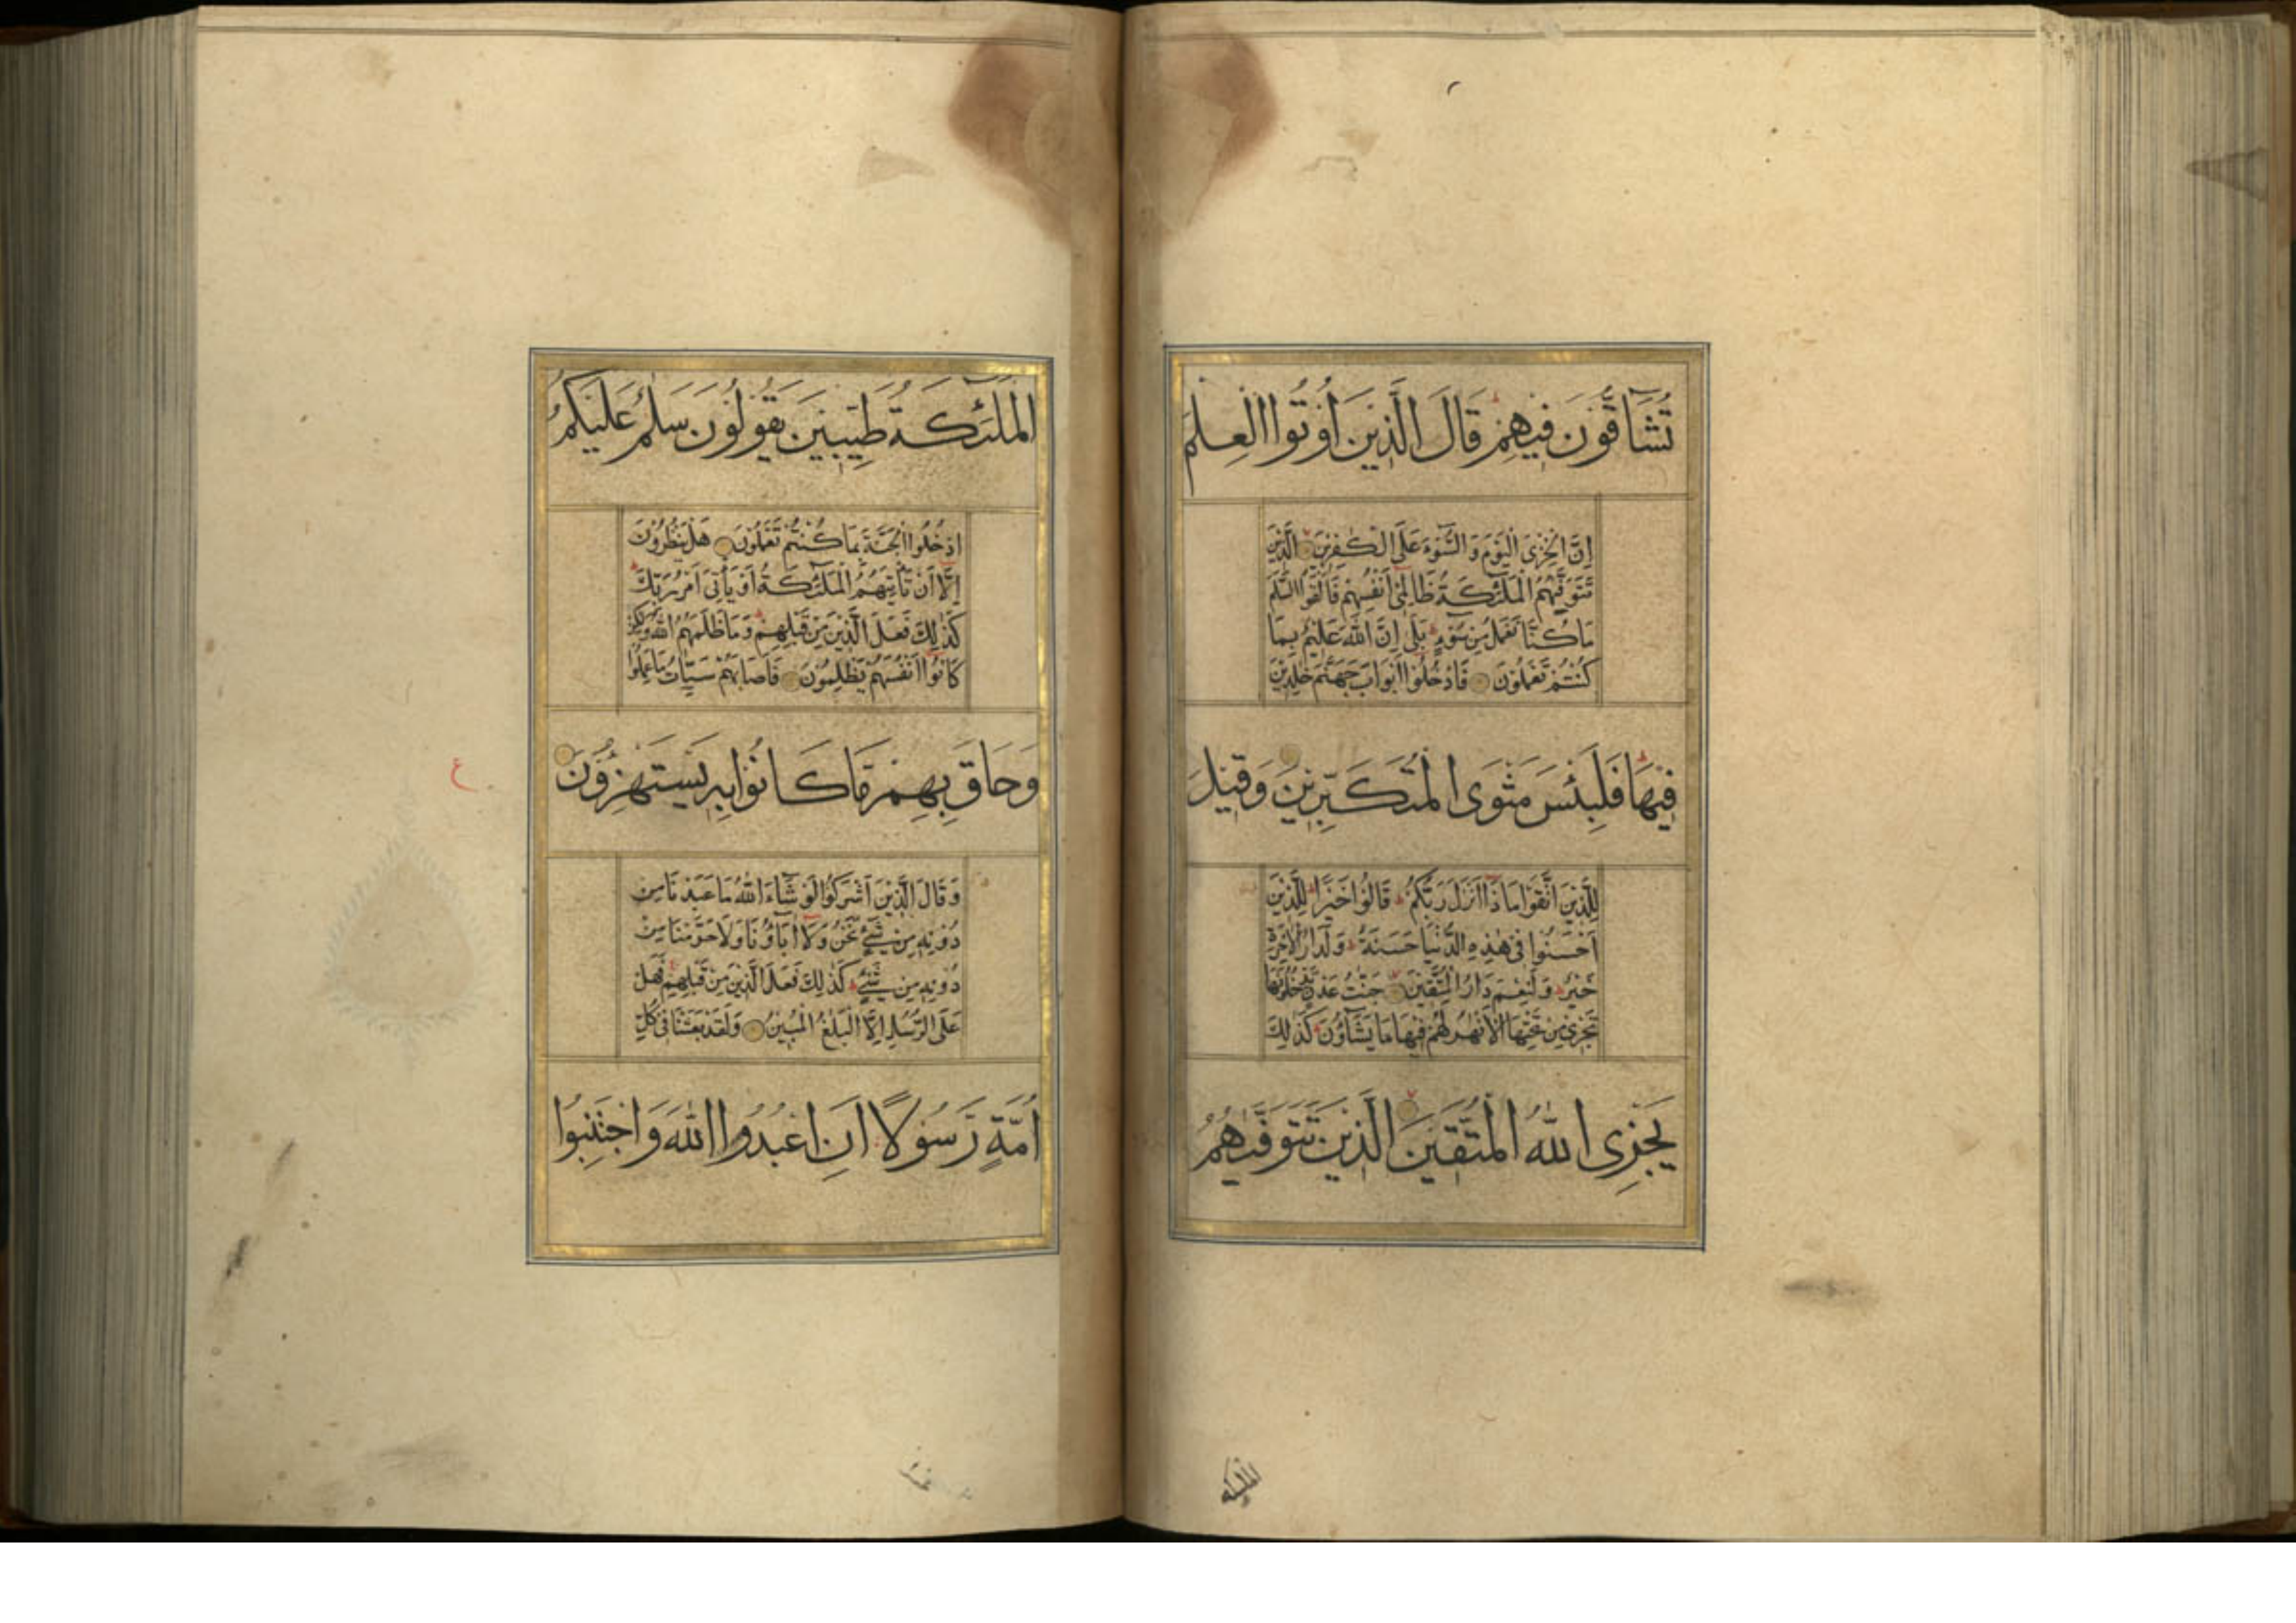 تُشَآقُّونَ فِيهِمْ قَالَ الَّذِينَ أُوتُوا الْعِلْمَ
إِنَّ الْخِزْىَ الْيَوْمَ وَالسُّوْءَ عَلَى الْكٰفِرِينَ الَّذِينَ
تَتَوَفّٰيهُمُ الْمَلٰئِكَةُ ظَالِمِى أَنْفُسِهِمْ فَأَلْقَوُا السَّلَمَ
مَا كُنَّا نَعْمَلُ مِنْ سُوْءٍ بَلٰى إِنَّ اللّٰهَ عَلِيمٌ بِمَا
كُنْتُمْ تَعْمَلُونَ فَادْخُلُوا أَبْوَابَ جَهَنَّمَ خٰلِدِينَ
فِيهَا فَلَبِئْسَ مَثْوَى الْمُتَكَبِّرِينَ وَقِيلَ
لِلَّذِينَ اتَّقَوْا مَاذَا أَنْزَلَ رَبُّكُمْ قَالُوا خَيْرًا لِلَّذِينَ
أَحْسَنُوا فِى هٰذِهِ الدُّنْيَا حَسَنَةٌ وَلَدَارُ الْاٰخِرَةِ
خَيْرٌ وَلَنِعْمَ دَارُ الْمُتَّقِينَ جَنّٰتُ عَدْنٍ يَدْخُلُونَهَا
تَجْرِى مِنْ تَحْتِهَا الْأَنْهٰرُ لَهُمْ فِيهَا مَا يَشَآؤُنَ كَذٰلِكَ
يَجْزِى اللّٰهُ الْمُتَّقِينَ الَّذِينَ تَتَوَفّٰيهُمُ
الملئكة
الْمَلٰئِكَةُ طَيِّبِينَ يَقُولُونَ سَلٰمٌ عَلَيْكُمُ
ادْخُلُوا الْجَنَّةَ بِمَا كُنْتُمْ تَعْمَلُونَ هَلْ يَنْظُرُونَ
إِلَّا أَنْ تَأْتِيَهُمُ الْمَلٰئِكَةُ أَوْ يَأْتِىَ أَمْرُ رَبِّكَ
كَذٰلِكَ فَعَلَ الَّذِينَ مِنْ قَبْلِهِمْ وَمَا ظَلَمَهُمُ اللّٰهُ وَلٰكِنْ
كَانُوا أَنْفُسَهُمْ يَظْلِمُونَ فَأَصَابَهُمْ سَيِّاٰتُ مَا عَمِلُوا
وَحَاقَ بِهِمْ مَّا كَانُوا بِهِ يَسْتَهْزِؤُنَ
وَقَالَ الَّذِينَ أَشْرَكُوا لَوْ شَآءَ اللّٰهُ مَا عَبَدْنَا مِنْ
دُونِهِ مِنْ شَىْءٍ نَحْنُ وَلَا اٰبَآؤُنَا وَلَا حَرَّمْنَا مِنْ
دُونِهِ مِنْ شَىْءٍ كَذٰلِكَ فَعَلَ الَّذِينَ مِنْ قَبْلِهِمْ فَهَلْ
عَلَى الرُّسُلِ إِلَّا الْبَلٰغُ الْمُبِينُ وَلَقَدْ بَعَثْنَا فِى كُلِّ
أُمَّةٍ رَسُولًا أَنِ اعْبُدُوا اللّٰهَ وَاجْتَنِبُوا
ع